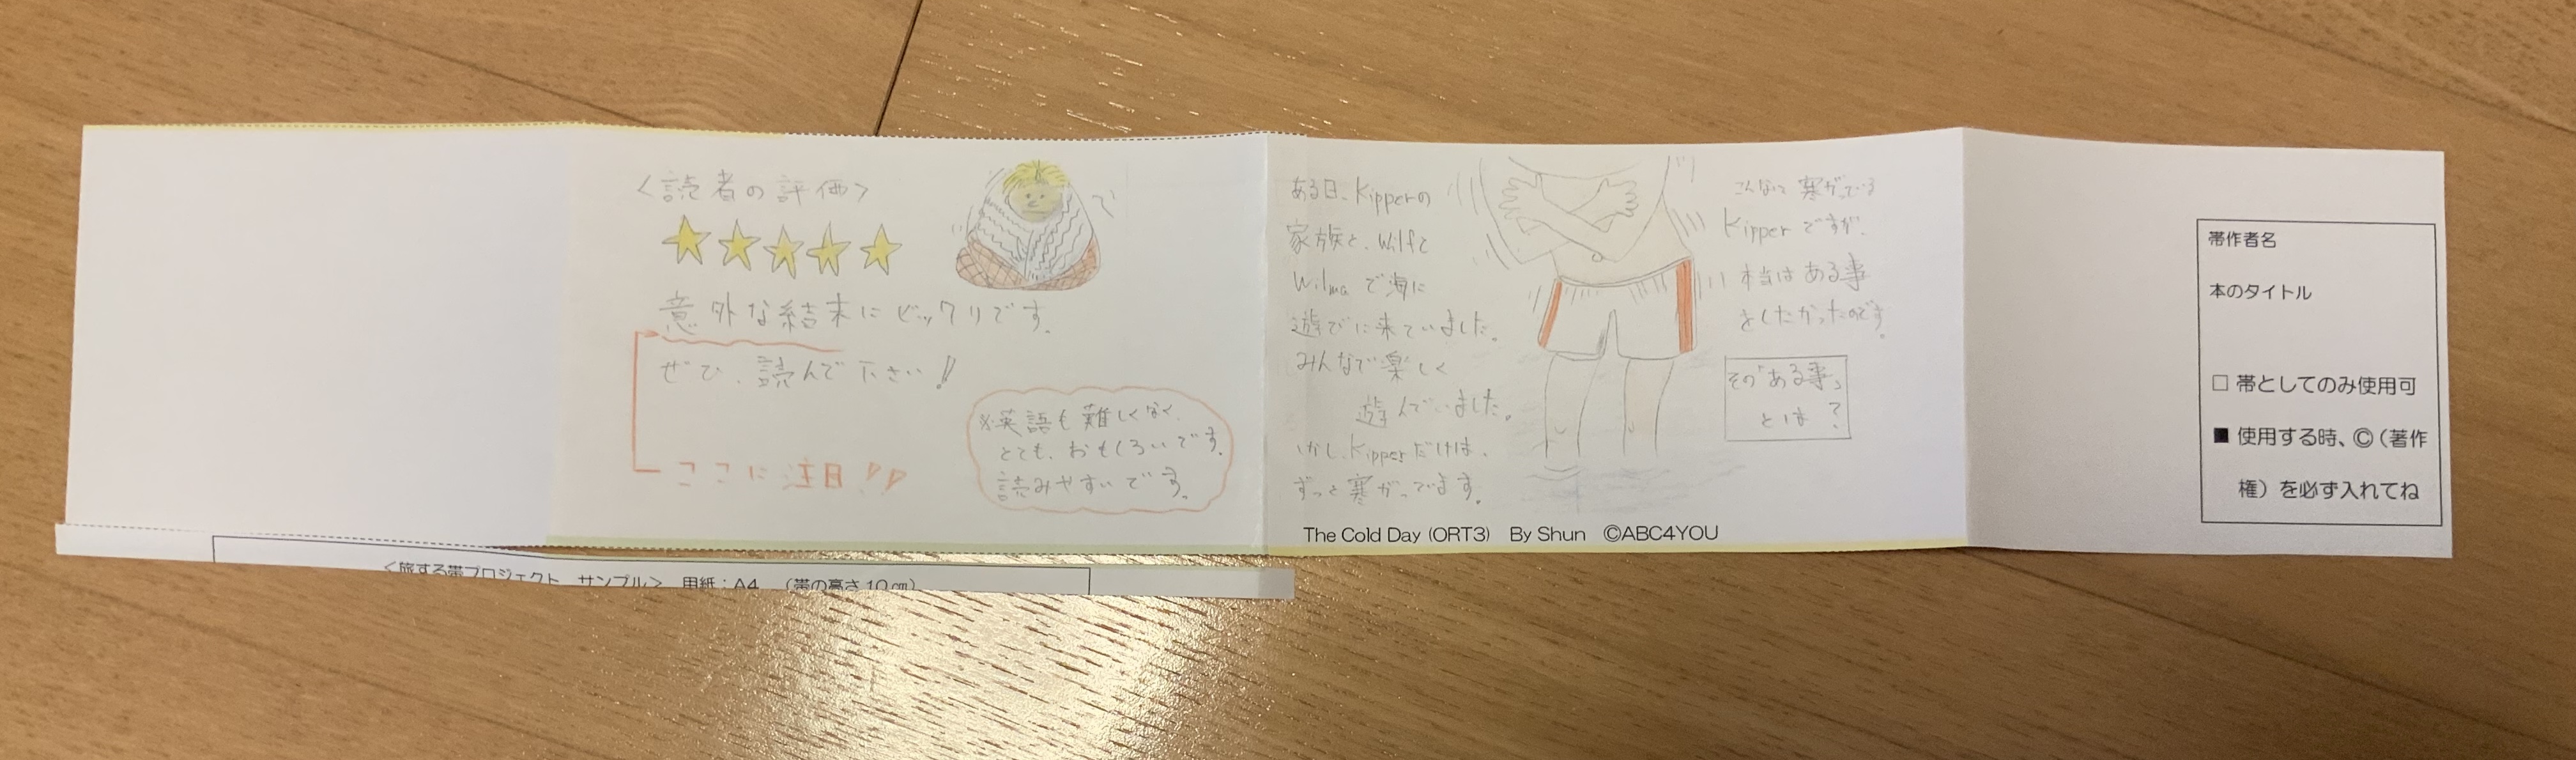 <読者の評価>
意外な結末にビックリです。
ぜひ、読んで下さい!!
ここに注目!!
※英語も難しくなく、
とても、おもしろいです。
読みやすいです。
ある日、Kipperの
家族と、Wilfと
Wilmaで海に
遊びに来ていました。
みんなで楽しく
遊んでいました。
しかし、Kipperだけは、
ずっと寒がってます。
こんなに寒がっている
Kipperですが、
本当はある事
をしたかったのです。
その「ある事」
とは?
The Cold Day (ORT3) By Shun ©ABC4YOU
帯作者名
本のタイトル
□ 帯としてのみ使用可
■ 使用する時、©(著作
権)を必ず入れてね
<旅する帯プロジェクト サンプル> 用紙:A4 (帯の高さ10㎝)